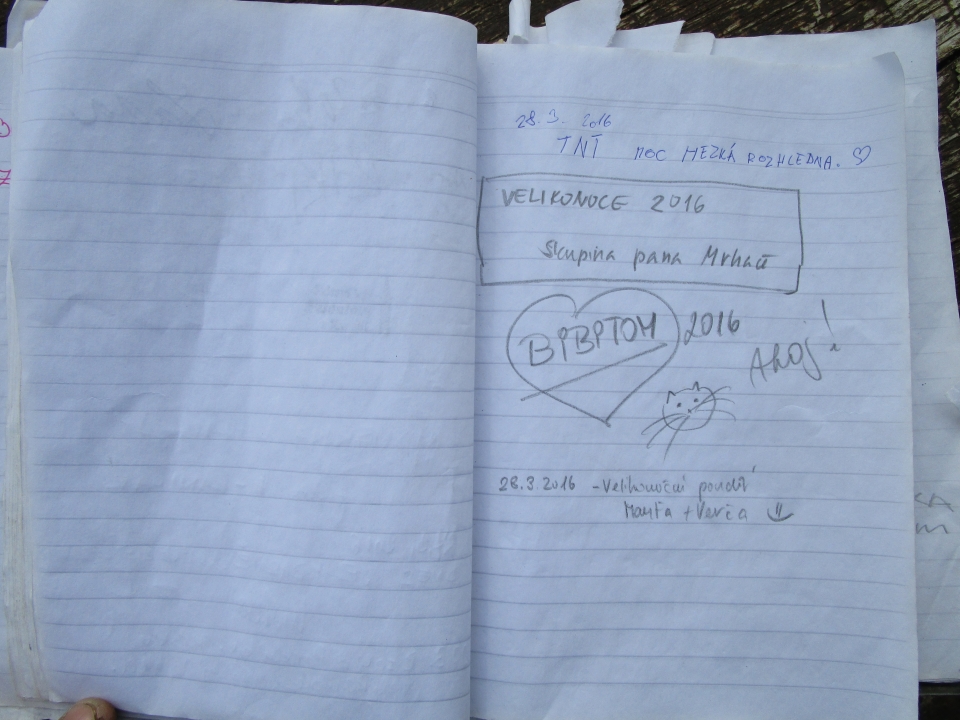 28.3. 2016
TNT MOC HEZKÁ ROZHLEDNA.
VELIKONOCE 2016
Skupina pana Mrhač
BPBPTOM 2016
AHOJ!
28.3.2016 - Velikonoční pondělí
+ Verča